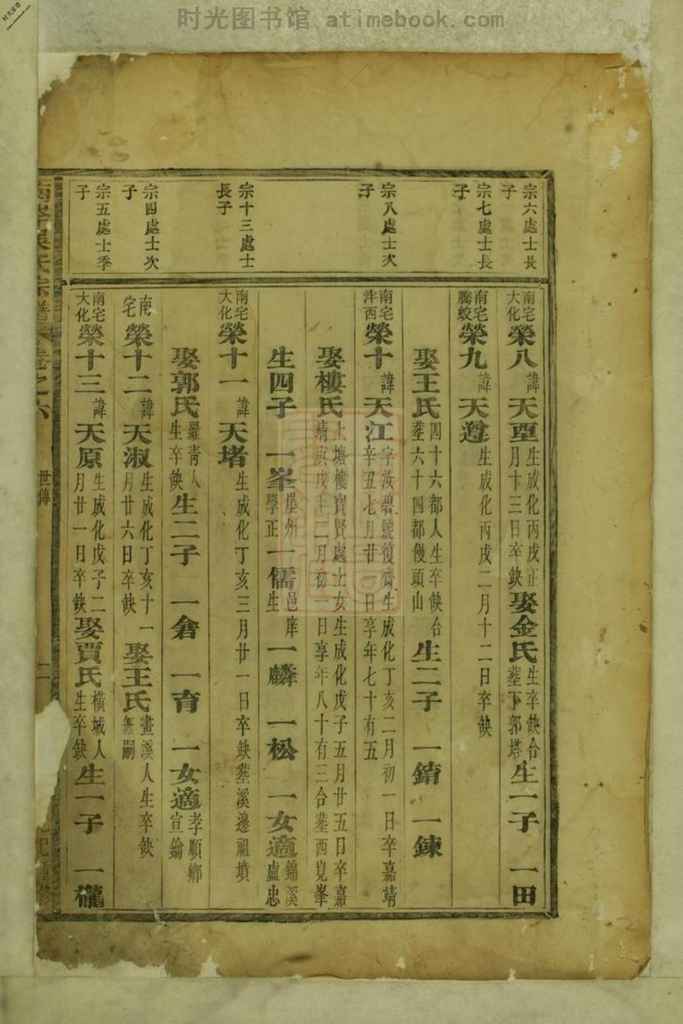 时光图书馆 atimebook.com
宗六處士長子
南宅大化榮八諱天
生成化丙戌正月十三日卒缺
娶金氏
生卒缺合葬下郭塔
生一子 一田
宗七處士長子
南宅
榮九諱天遵
生成化丙戌二月十二日卒缺
娶王氏
四十六都人生卒缺合葬六十四都饅頭山
生二子 一錥 一鍊
宗八處士次子
南宅泮西榮十諱天江
生成化丁亥二月初一日卒嘉靖辛丑七月廿 日享年七十有五
娶樓氏
上塘樓寶賢處士女生成化戊子五月廿五日卒嘉靖庚戌十二月初一日享年八十有三合葬西峴峯
生四子 一峯
學正
一儒
邑庠生
一麟 一松 一女適
錦溪盧忠
宗十三處士長子
南宅大化榮十一諱天堵
生成化丁亥三月廿一日卒缺葬溪邊祖墳
娶郭氏
羅青人生卒缺
生二子 一倉 一育 一女適
孝順鄉宣鑰
宗四處士次子
南宅榮十二諱天淑
生成化丁亥十一月廿六日卒缺
娶王氏
畫溪人生卒缺無嗣
宗五處士季子
南宅大化榮十三諱天原
生成化戊子二月廿一日卒缺
娶賈氏
橫城人生卒缺
生一子 一礲
吳氏宗譜 卷之六
世傳
二